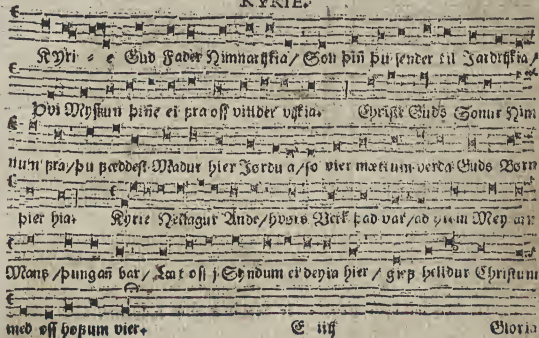 KYRIE.
Kyri = e Gud Fader Himnarijkia / Son þiñ þu sender til Jardrijkia /
Þvi Myskun þine ei fra oss vijlder vijkia. Christe Guds Sonur Him
num fra / þu fæddest Madur hier Jordu a / so vier mættum verda Guds Børn
þier hia. Kyrie Heilagur Ande / hvers Verk þad var / ad Mey
Mans / þungañ bar / Læt oss j Syndum ei deyia hier / helldur Christum
med oss hofum vier. E iiij Gloria